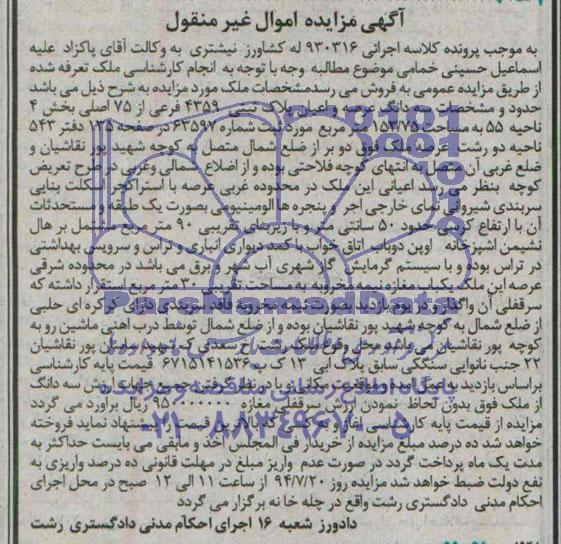 آگهی مزایده اموال غیر منقول
به موجب پرونده کلاسه اجرائی ۹۳۰۳۱۶ له کشاورز نیشتری به وکالت آقای پاکزاد علیه
اسماعیل حسینی خمامی موضوع مطالبه وجه با توجه به انجام کارشناسی ملک تعرفه شده
از طریق مزایده عمومی به فروش می رسدمشخصات ملک مورد مزایده به شرح ذیل می باشد
حدود و مشخصات سه دانگ عرصه و اعیان پلاک ثبتی ۴۳۵۹ فرعی از ۷۵ اصلی بخش ۴
ناحیه ۵۵ به مساحت ۱۵۴/۷۵ متر مربع مورد ثبت شماره ۶۳۵۹۷ در صفحه ۱۳۵ دفتر ۵۴۳
ناحیه دو رشت عرصه ملک فوق دو بر از ضلع شمال متصل به کوچه شهید پور نقاشیان و
ضلع غربی آن متصل به انتهای کوچه فلاحتی بوده و از اضلاع شمالی وغربی در طرح تعریض
کوچه بنظر می رسد اعیانی این ملک در محدوده غربی عرصه با استراکچر اسکلت بنایی
سربندی شیروانی نمای خارجی آجر و پنجره ها آلومینیومی بصورت یک طبقه و مستحدثات
آن با ارتفاع کرسی حدود ۵۰ سانتی متر و با زیربنای تقریبی ۹۰ متر مربع مشتمل بر هال
نشیمن اشپزخانه اوپن دوباب اتاق خواب با کمد دیواری انباری و تراس و سرویس بهداشتی
در تراس بوده و با سیستم گرمایش گاز شهری آب شهر و برق می باشد در محدوده شرقی
عرصه این ملک یکباب مغازه نیمه مخروبه به مساحت تقریبی ۳۰ متر مربع استقرار داشته که
سرقفلی آن واگذار و در یوم بازدید بصورت نیمه مخروبه فاقد سربندی دارای کرکره ای حلبی
از ضلع شمال به کوچه شهید پور نقاشیان بوده و از ضلع شمال توسط درب اهنی ماشین رو به
کوچه پور نقاشیان می باشد محل وقوع ملک رشت خ سعدی ک شهید پور نقاشیان
۲۲ جنب نانوایی سنگکی سابق پلاک آبی ۱۳ ک پ ۶۷۱۵۱۴۱۵۳۶ قیمت پایه کارشناسی
براساس بازدید به عمل آمده و موقعیت مکانی و با در نظر گرفتن جمیع جهات ارزش سه دانگ
از ملک فوق بدون لحاظ نمودن ارزش سرقفلی مغازه ریال برآورد می گردد
مزایده از قیمت پایه کارشناسی آغاز و به کسی که بالاترین قیمت را پیشنهاد نماید فروخته
خواهد شد ده درصد مبلغ مزایده از خریدار فی المجلس اخذ و مابقی می بایست حداکثر به
مدت یک ماه پرداخت گردد در صورت عدم واریز مبلغ در مهلت قانونی ده درصد واریزی به
نفع دولت ضبط خواهد شد مزایده روز ۹۴/۷/۲۰ از ساعت ۱۱ الی ۱۲ صبح در محل اجرای
احکام مدنی دادگستری رشت واقع در چله خانه برگزار می گردد
دادورز شعبه ۱۶ اجرای احکام مدنی دادگستری رشت
ParsNamadData
پایگاه اطلاع رسانی مناقصه و مزایده
۰۲۱-۸۸۳۴۹۶۷۰-۵